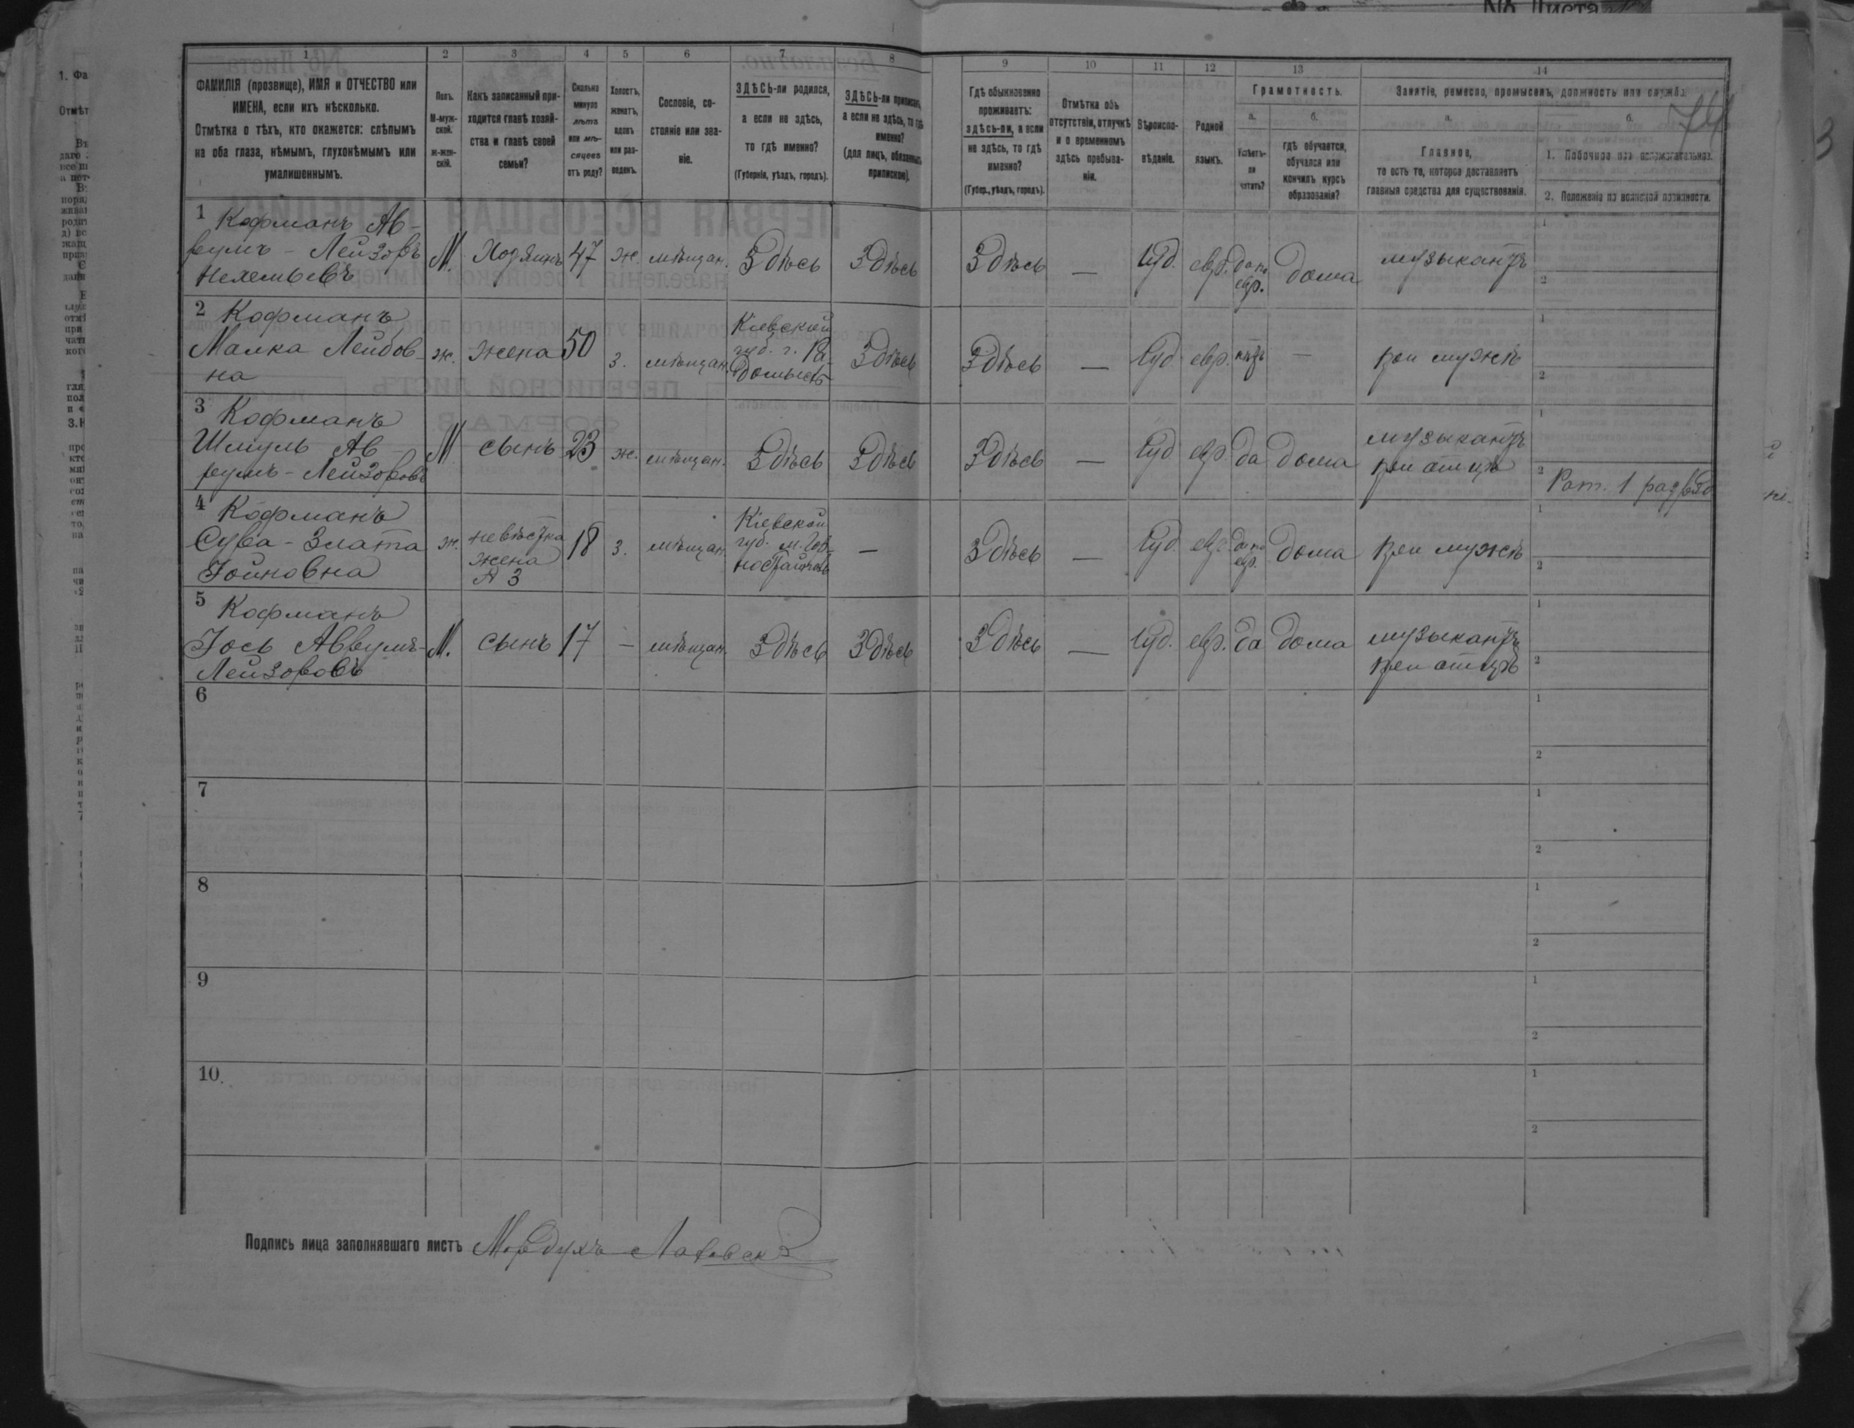 1 2 3 4 5 6 7 8 9 10 11 12 13 14
ФАМИЛІЯ (прозвище), ИМЯ и ОТЧЕСТВО или
ИМЕНА, если ихъ нѣсколько.
Отмѣтка о тѣхъ, кто окажется: слѣпымъ
на оба глаза, нѣмымъ, глухонѣмымъ или
умалишеннымъ.
Полъ.
М-муж-
ской.
Ж-жен-
скій.
Какъ записанный при-
ходится главѣ хозяй-
ства и главѣ своей
семьи?
Сколько
минуло
лѣтъ
или мѣ-
сяцевъ
отъ роду?
Холостъ,
женатъ,
вдовъ
или раз-
веденъ.
Сословіе, со-
стояніе или зва-
ніе.
ЗДѢСЬ-ли родился,
а если не здѣсь,
то гдѣ именно?
(Губернія, уѣздъ, городъ).
ЗДѢСЬ-ли приписанъ,
а если не здѣсь, то гдѣ
именно?
(для лицъ, обязанныхъ
припискою).
Гдѣ обыкновенно
проживаетъ:
здѣсь-ли, а если
не здѣсь, то гдѣ
именно?
(Губер., уѣздъ, городъ).
Отмѣтка объ
отсутствіи, отлучкѣ
и о временномъ
здѣсь пребыва-
ніи.
Вѣроиспо-
вѣданіе.
Родной
языкъ.
Грамотность.
а.
Умѣетъ-
ли
читать?
б.
гдѣ обучается,
обучался или
кончилъ курсъ
образованія?
Занятіе, ремесло, промыселъ, должность или служба.
а.
Главное,
то есть то, которое доставляетъ
главныя средства для существованія.
б.
1. Побочное или вспомогательное.
2. Положеніе по воинской повинности.
1 Кофманъ Ав-
румъ - Лейзоръ
Нехемьевъ
М. Хозяинъ 47 ж. мѣщан. Здѣсь Здѣсь Здѣсь — Іуд. евр. да по
евр. дома музыкантъ
2 Кофманъ
Малка Лейбов
на
ж. жена 50 з. мѣщан. Кіевской
губ. г. Ра-
домысль Здѣсь Здѣсь — Іуд евр. нѣтъ — при мужѣ
3 Кофманъ
Шмуль Ав
румъ - Лейзоровъ
М сынъ 23 ж. мѣщан. Здѣсь Здѣсь Здѣсь — Іуд евр. да дома музыкантъ
при отцѣ
Рат. 1 раз
4 Кофманъ
Сува - Злата
Іойновна
ж. невѣстка
жена
№ 3
18 з. мѣщан. Кіевской
губ. м. — Здѣсь — Іуд. евр. да по
евр. дома при мужѣ
5 Кофманъ
Іось Аврумъ-
Лейзоровъ
М. сынъ 17 — мѣщан. Здѣсь Здѣсь Здѣсь — Іуд. евр. да дома музыкантъ
при отцѣ
6
7
8
9
10
Подпись лица заполнявшаго листъ Мордухъ